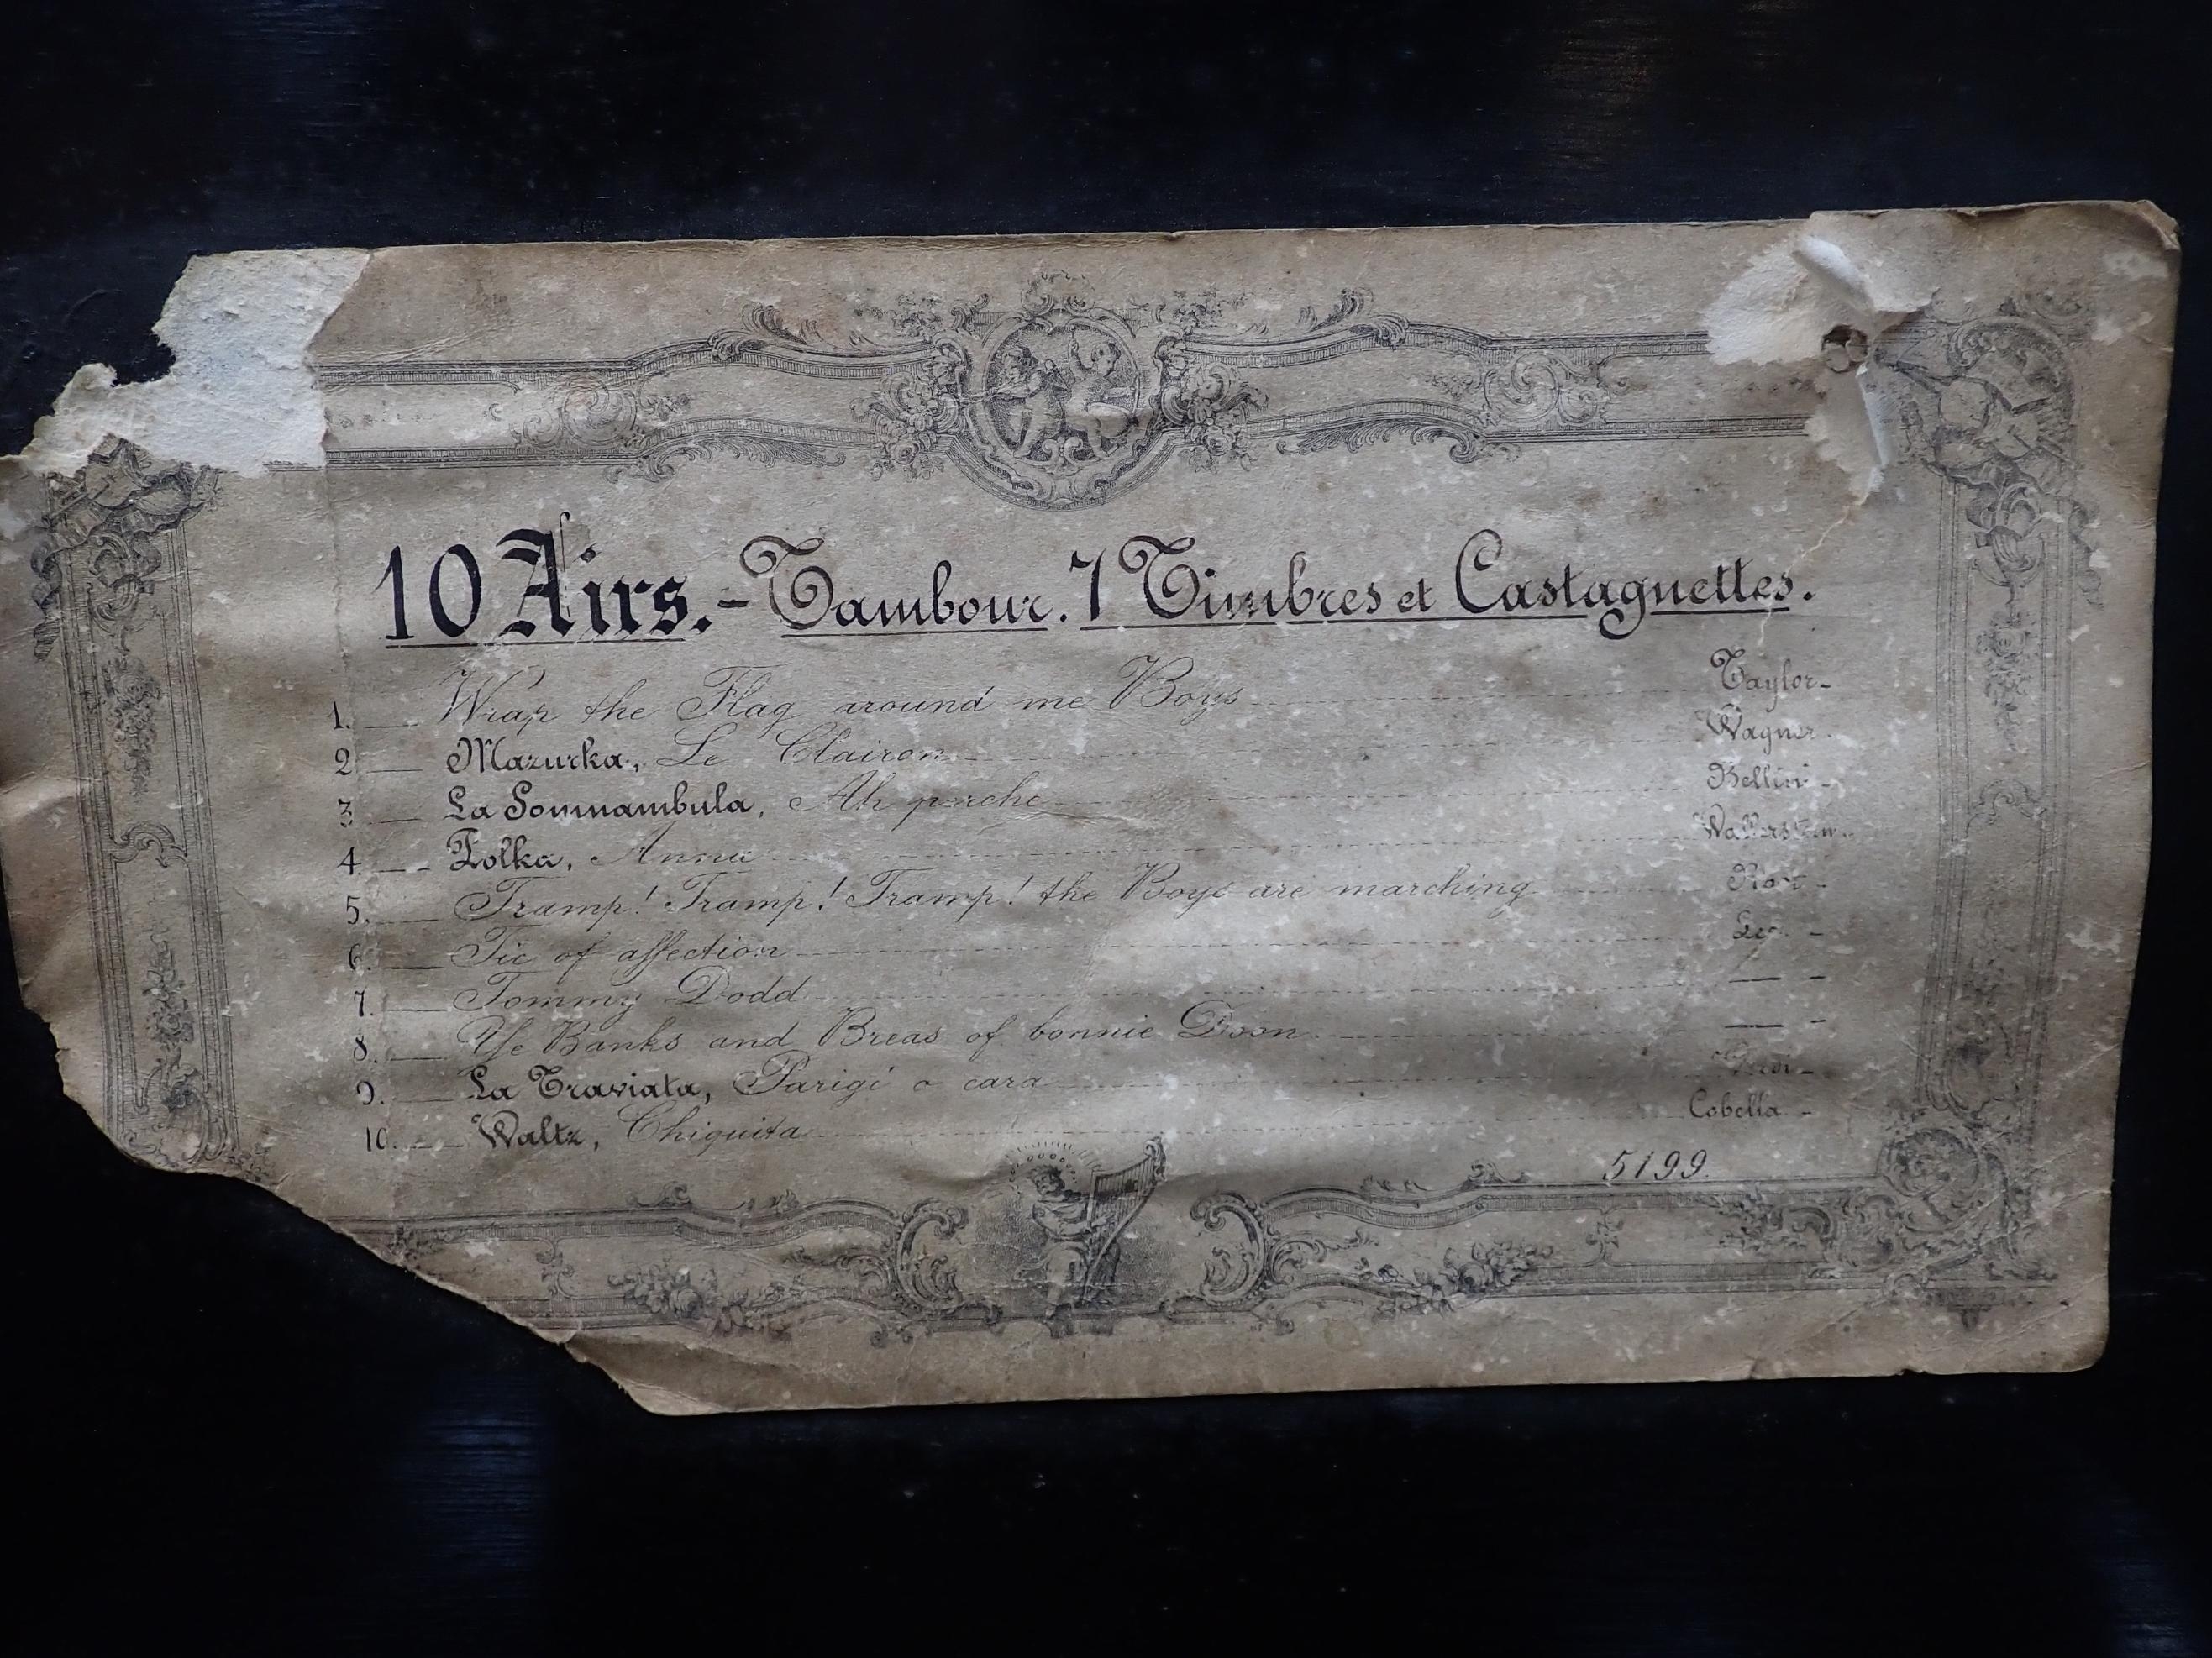 10 Airs.- Tambour. 7 Timbres et Castagnettes.
1. Wrap the Flag around me Boys Taylor
2 Mazurka, Le Clairon Wagner.
3 La Sonnambula, Ah perche Bellini
4. Polka, Anna Wallerstein.
5. Tramp! Tramp! Tramp! the Boys are marching Root
6. Tic of affection
7. Tommy Dodd —
8. Ye Banks and Breas of bonnie Doon —
9. La Traviata, Parigi o cara Verdi
10. Waltz, Chiquita Cobella
5199.